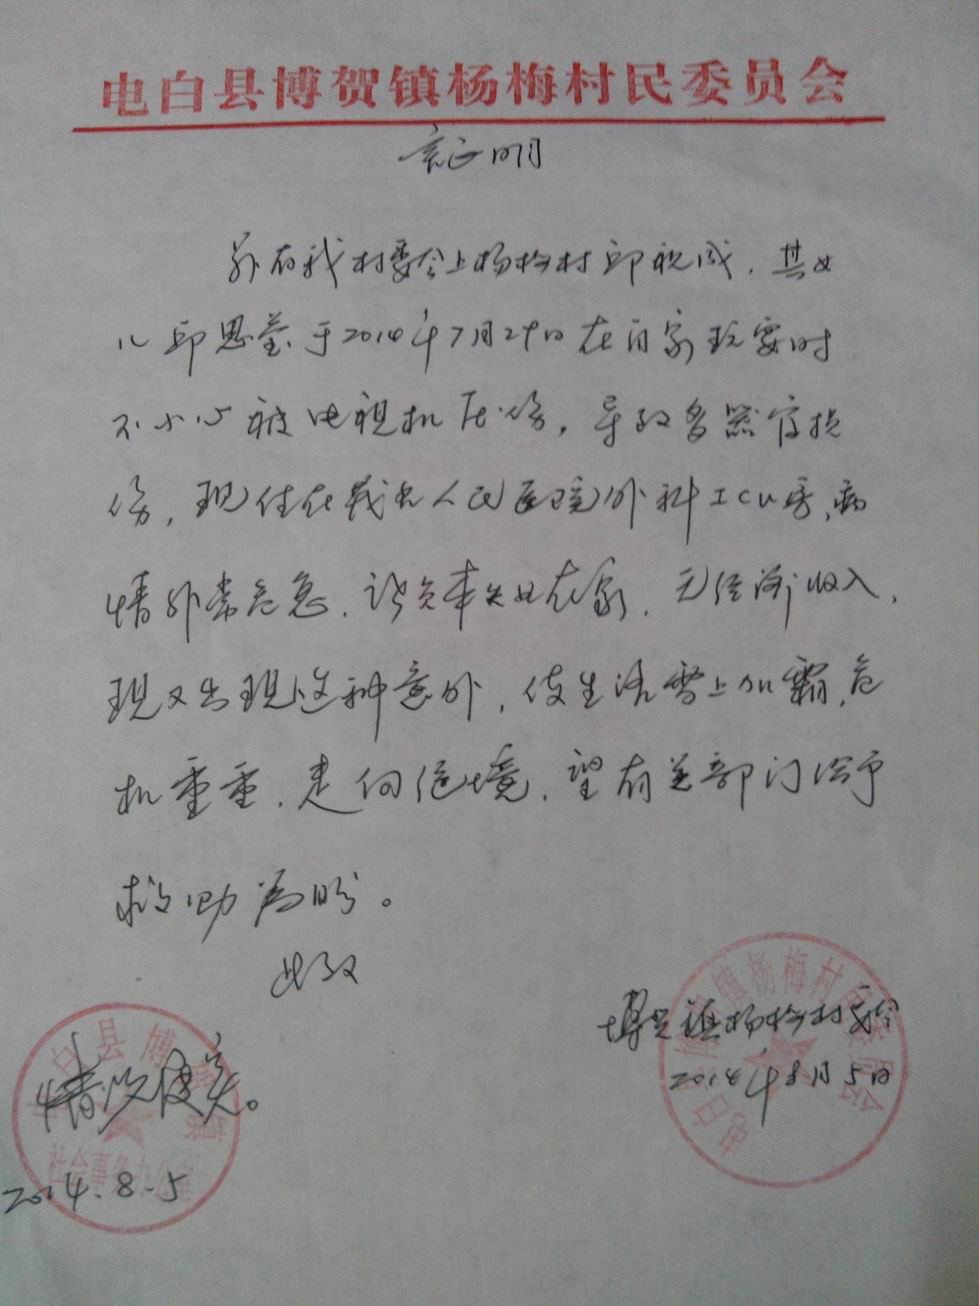 电白县博贺镇杨梅村民委员会
证明
兹有我村委会上杨梅村邱祝成，其女
儿邱思莹于2014年7月29日在自家玩耍时
不小心被电视机压伤，导致多器官损
伤，现住在茂名人民医院外科ICU房，病
情非常危急，该负本失业在家，无经济收入，
现又出现这种意外，使生活雪上加霜，危
机重重，走向绝境，望有关部门给予
救助为盼。
此致
博贺镇杨梅村委会
2014年8月5日
情况属实。
2014.8.5
电白县博贺镇杨梅村民委员会
电白县博贺镇
社会事务办公室